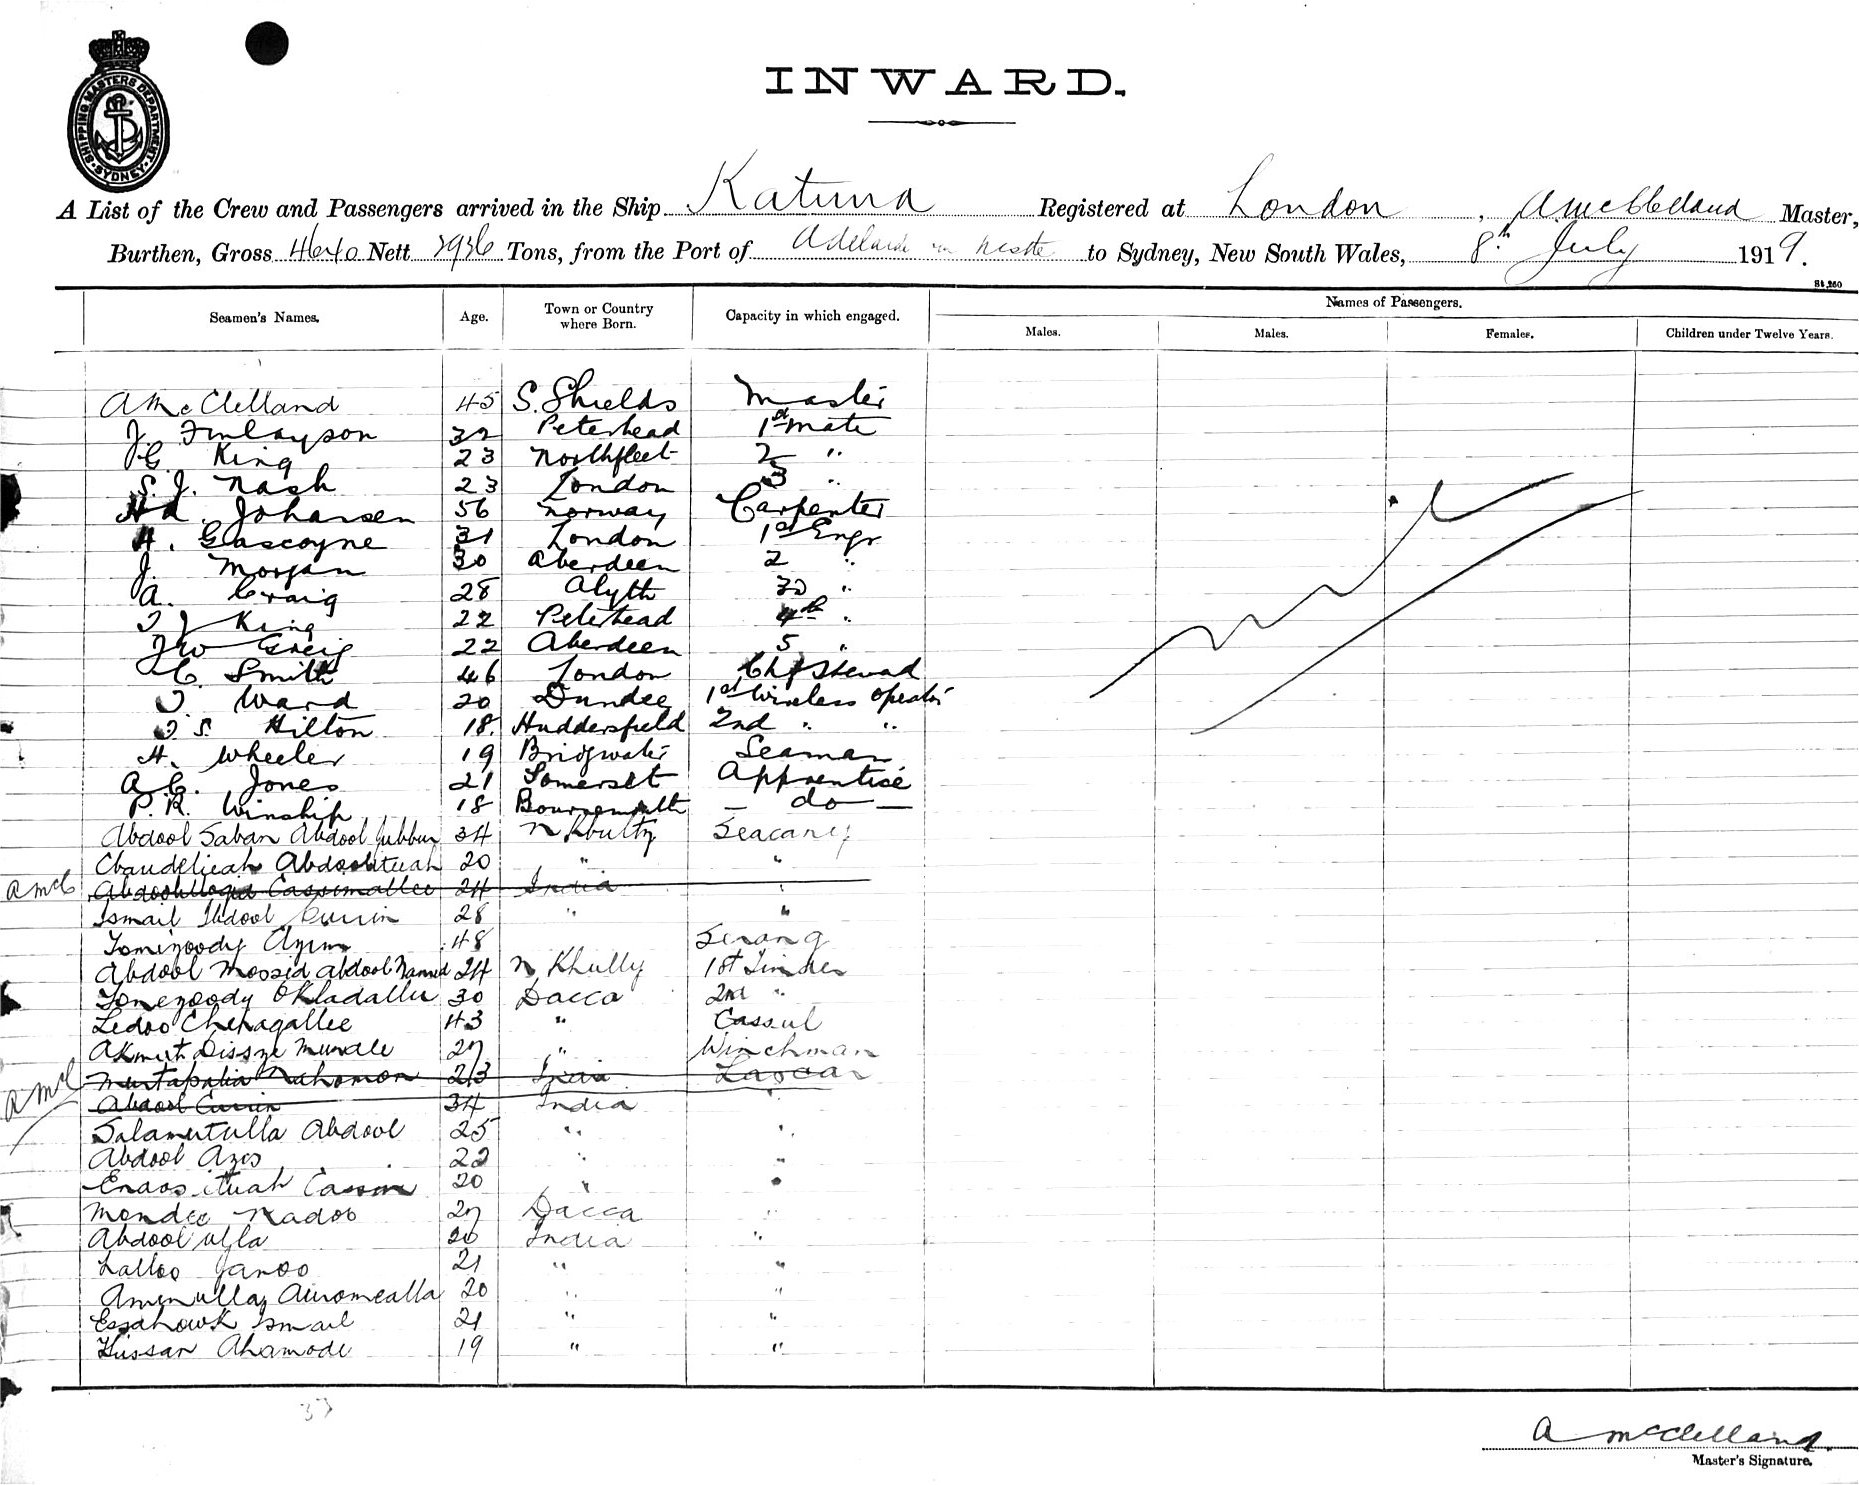 SHIPPING MASTERS DEPARTMENT
SYDNEY
INWARD.
A List of the Crew and Passengers arrived in the Ship Katuna Registered at London, A. McClelland Master,
Burthen, Gross 4640 Nett 2936 Tons, from the Port of Adelaide to Sydney, New South Wales, 8th July 1919.
Seamen's Names. Age. Town or Country where Born. Capacity in which engaged. Names of Passengers.
Males. Males. Females. Children under Twelve Years.
A McClelland 45 S. Shields Master
J. Finlayson 32 Peterhead 1st mate
G. King 23 Northfleet 2 "
S. J. Nash 23 London 3 "
Johansen 56 Norway Carpenter
H. Gascoyne 31 London 1st Engr
J. Morgan 30 Aberdeen 2 "
A. Craig 28 Alyth 3D "
J King 22 Peterhead 4th "
JW Greig 22 Aberdeen 5 "
C. Smith 46 London Chf Steward
J. Ward 20 Dundee 1st Wireless Operator
J. S. Hilton 18. Huddersfield 2nd " "
H. Wheeler 19 Bridgwater Seaman
A. C. Jones 21 Somerset Apprentice
P. R. Winship 18 Bournemouth - do -
Abdool Saban Abdool Jubbur 34 N Khulty Seacany
20 " "
AMcC Cassimallee 24 India "
Ismail Abdool 28 " "
48 Serang
Abdool Mossid Abdool Hamed 24 N Khully 1st Tindel
Tonezoody Okladallu 30 Dacca 2nd "
Ledoo Chenagallee 43 " Cassul
Akmut Dissze Mundle 27 " Winchman
AMcC Nahomon 23 India Lascar
Abdool Currin 34 India "
Salamutulla Abdool 25 " "
Abdool Azis 22 " "
Cassim 20 " "
Mondee Nadoo 27 Dacca "
Abdool ulla 20 India "
Lalloo Janoo 21 " "
Amenulla Auromealla 20 " "
Essahowk Ismail 21 " "
Hussan Ahamode 19 " "
33
A McClelland.
Master's Signature.